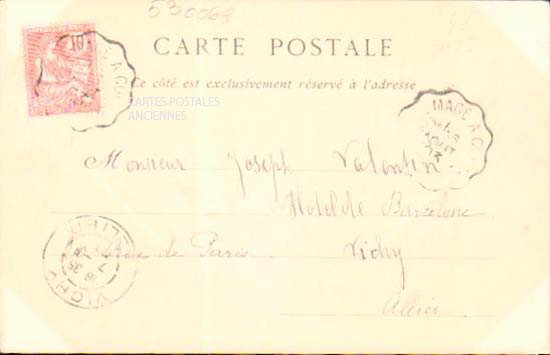 530068
CARTE POSTALE
Ce côté est exclusivement réservé à l'adresse
CARTES POSTALES
ANCIENNES
MAGE A G
Monsieur Joseph Valentin
Hotel de Barcelone
Rue de Paris Vichy
Allier
VICHY
ALLIER
16 35
7